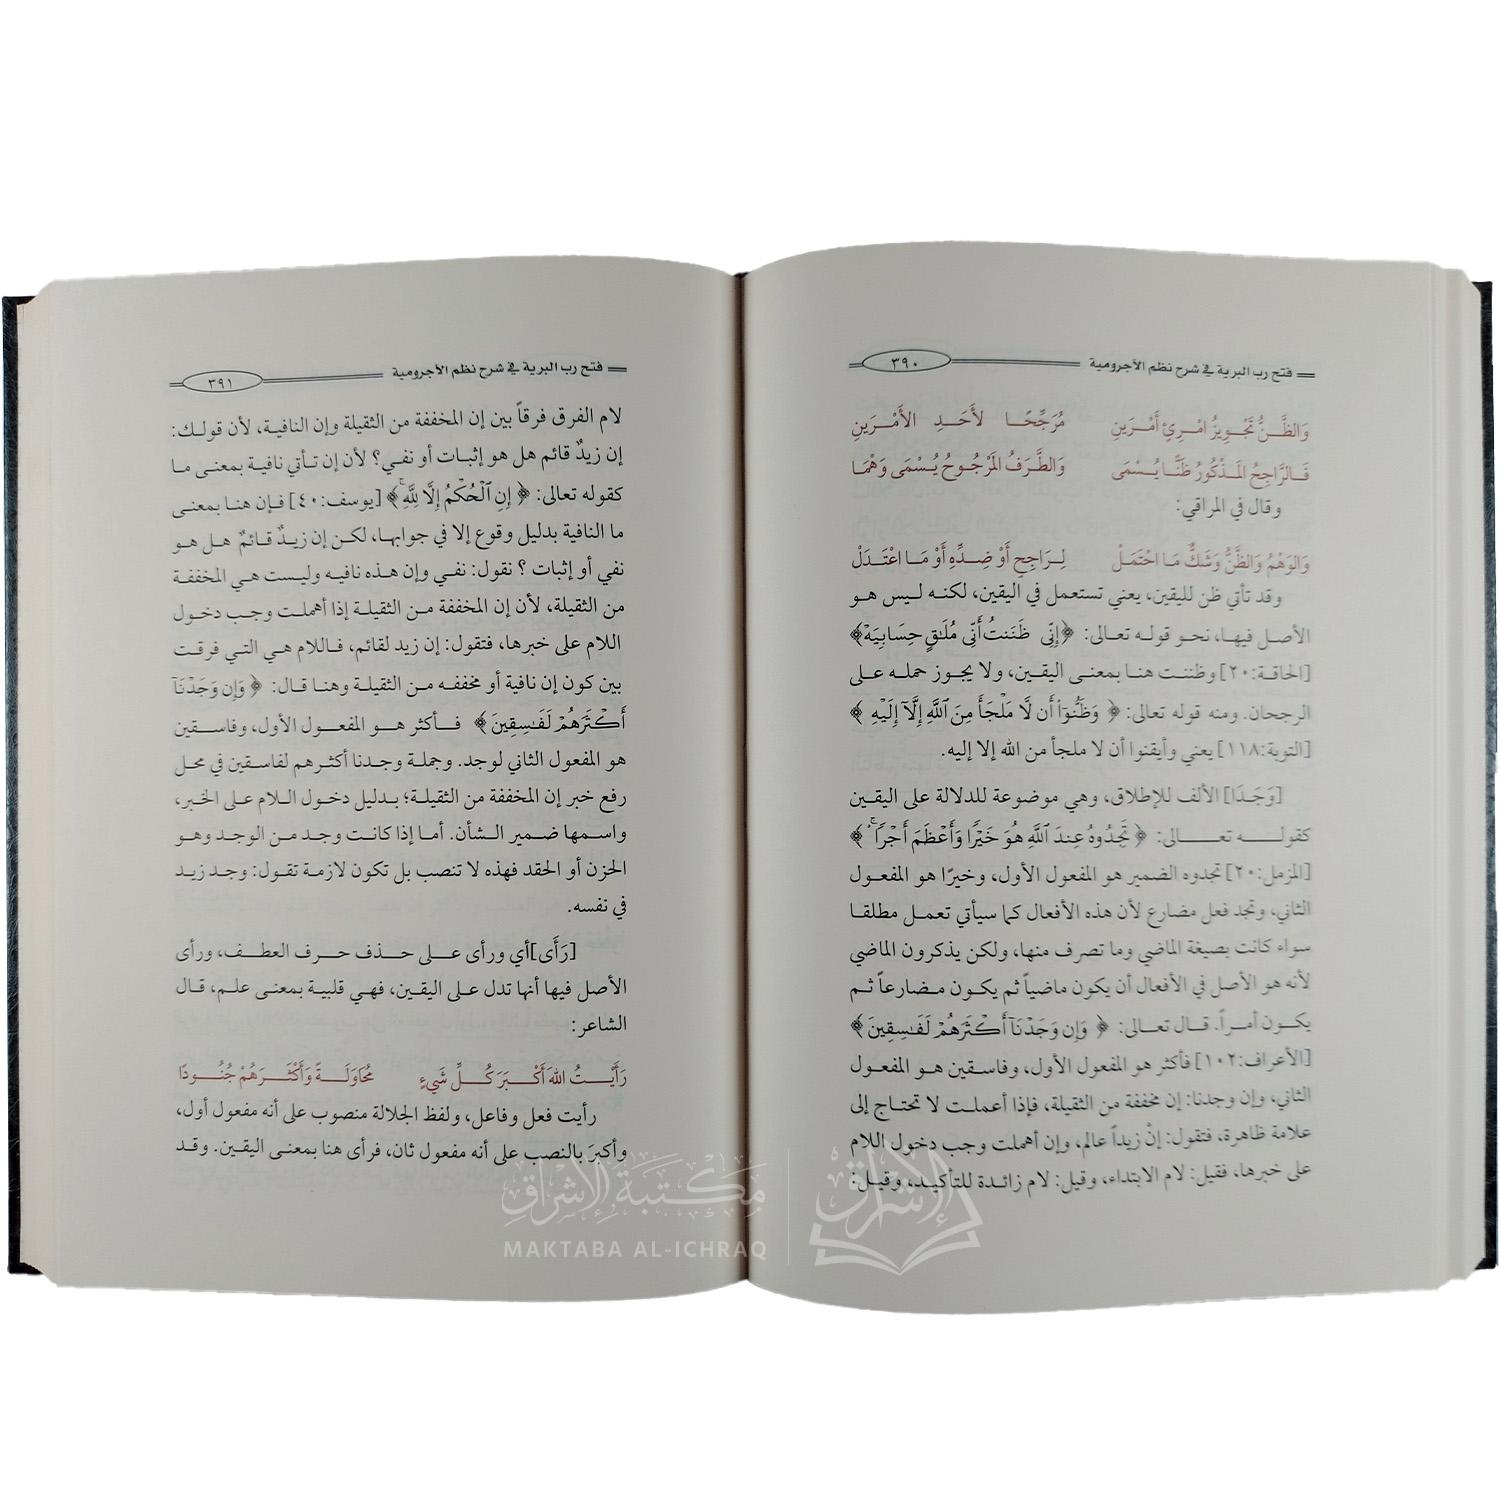 فتح رب البرية في شرح نظم الآجرومية
٣٩٠
وَالظَّنُّ تَجْوِيزُ امْرِئٍ أَمْرَينِ مُرَجِّحًا لأَحَدِ الأَمْرَينِ
فَالرَّاجِحُ المَذْكُورُ ظَنًّا يُسْمَى وَالطَّرَفُ المَرْجُوحُ يُسْمَى وَهْمَا
وقال في المراقي:
وَالوَهْمُ وَالظَّنُّ وَشَكٌّ مَا احْتَمَلْ لِرَاجِحٍ أَوْ ضِدِّهِ أَوْ مَا اعْتَدَلْ
وقد تأتي ظن لليقين، يعني تستعمل في اليقين، لكنه ليس هو
الأصل فيها، نحو قوله تعالى: ﴿إِنِّي ظَنَنتُ أَنِّي مُلَٰقٍ حِسَابِيَهۡ﴾
[الحاقة:٢٠] وظننت هنا بمعنى اليقين، ولا يجوز حمله على
الرجحان. ومنه قوله تعالى: ﴿ وَظَنُّوٓاْ أَن لَّا مَلۡجَأَ مِنَ ٱللَّهِ إِلَّآ إِلَيۡهِ ﴾
[التوبة:١١٨] يعني وأيقنوا أن لا ملجأ من الله إلا إليه.
[وَجَدَا] الألف للإطلاق، وهي موضوعة للدلالة على اليقين
كقوله تعالى: ﴿ تَجِدُوهُ عِندَ ٱللَّهِ هُوَ خَيۡرٗا وَأَعۡظَمَ أَجۡرٗاۚ ﴾
[المزمل:٢٠] تجدوه الضمير هو المفعول الأول، وخيرًا هو المفعول
الثاني، وتجد فعل مضارع لأن هذه الأفعال كما سيأتي تعمل مطلقا
سواء كانت بصيغة الماضي وما تصرف منها، ولكن يذكرون الماضي
لأنه هو الأصل في الأفعال أن يكون ماضياً ثم يكون مضارعاً ثم
يكون أمراً. قال تعالى: ﴿ وَإِن وَجَدۡنَآ أَكۡثَرَهُمۡ لَفَٰسِقِينَ ﴾
[الأعراف:١٠٢] فأكثر هو المفعول الأول، وفاسقين هو المفعول
الثاني، وإن وجدنا: إن مخففة من الثقيلة، فإذا أعملت لا تحتاج إلى
علامة ظاهرة، فتقول: إنْ زيداً عالم، وإن أهملت وجب دخول اللام
على خبرها، فقيل: لام الابتداء، وقيل: لام زائدة للتأكيد، وقيل:
فتح رب البرية في شرح نظم الآجرومية
٣٩١
لام الفرق فرقاً بين إن المخففة من الثقيلة وإن النافية، لأن قولك:
إن زيدٌ قائم هل هو إثبات أو نفي؟ لأن إن تأتي نافية بمعنى ما
كقوله تعالى: ﴿ إِنِ ٱلۡحُكۡمُ إِلَّا لِلَّهِۚ ﴾ [يوسف:٤٠] فإن هنا بمعنى
ما النافية بدليل وقوع إلا في جوابها، لكن إن زيدٌ قائمٌ هل هو
نفي أو إثبات ؟ نقول: نفي وإن هذه نافيه وليست هي المخففة
من الثقيلة، لأن إن المخففة من الثقيلة إذا أهملت وجب دخول
اللام على خبرها، فتقول: إن زيد لقائم، فاللام هي التي فرقت
بين كون إن نافية أو مخففه من الثقيلة وهنا قال: ﴿ وَإِن وَجَدۡنَآ
أَكۡثَرَهُمۡ لَفَٰسِقِينَ ﴾ فأكثر هو المفعول الأول، وفاسقين
هو المفعول الثاني لوجد. وجملة وجدنا أكثرهم لفاسقين في محل
رفع خبر إن المخففة من الثقيلة؛ بدليل دخول اللام على الخبر،
واسمها ضمير الشأن. أما إذا كانت وجد من الوجد وهو
الحزن أو الحقد فهذه لا تنصب بل تكون لازمة تقول: وجد زيد
في نفسه.
[رَأَى]أي ورأى على حذف حرف العطف، ورأى
الأصل فيها أنها تدل على اليقين، فهي قلبية بمعنى علم، قال
الشاعر:
رَأَيْتُ اللهَ أَكْبَرَ كُلِّ شَيءٍ مُحَاوَلَةً وَأَكْثَرَهُمْ جُنُودَا
رأيت فعل وفاعل، ولفظ الجلالة منصوب على أنه مفعول أول،
وأكبرَ بالنصب على أنه مفعول ثان، فرأى هنا بمعنى اليقين. وقد
مكتبة الإشراق
MAKTABA AL-ICHRAQ
الإشراق